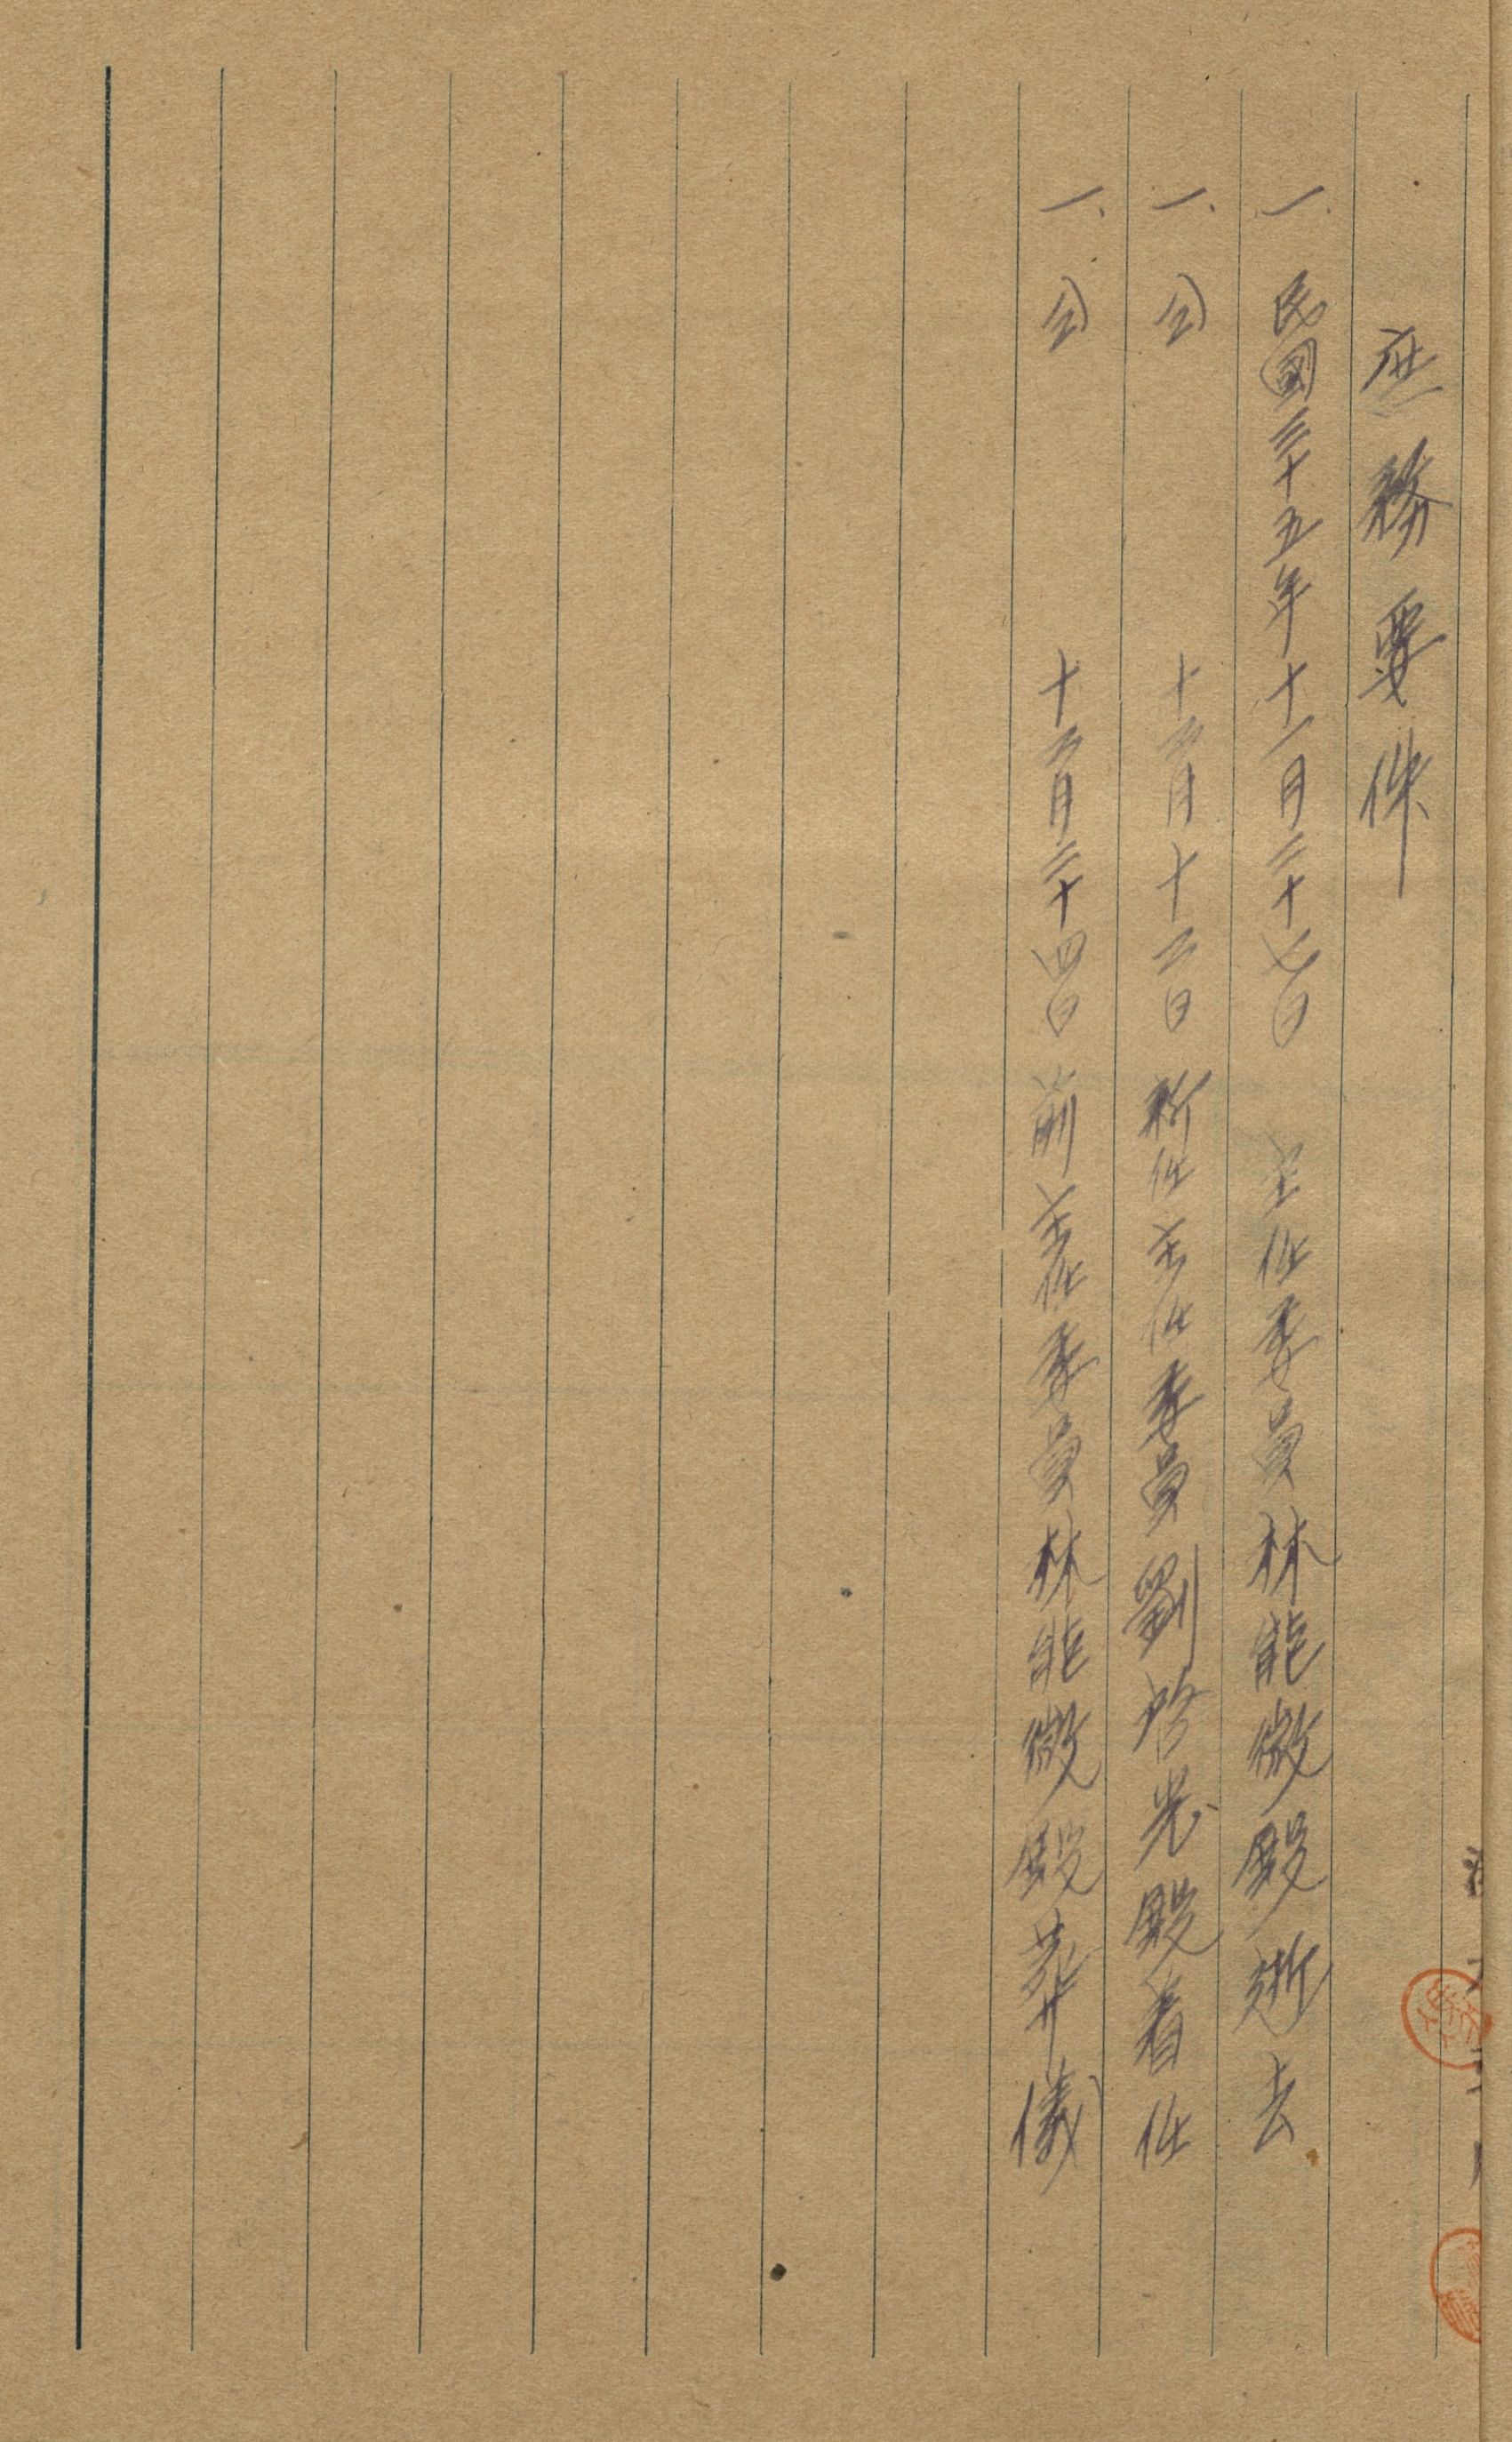 庶務要件
一、民國三十五年十一月二十七日 主任委員林熊徵殿逝去
一、仝 十二月十二日 新任主任委員劉啓光殿着任
一、仝 十二月二十四日 前主任委員林熊徵殿葬儀